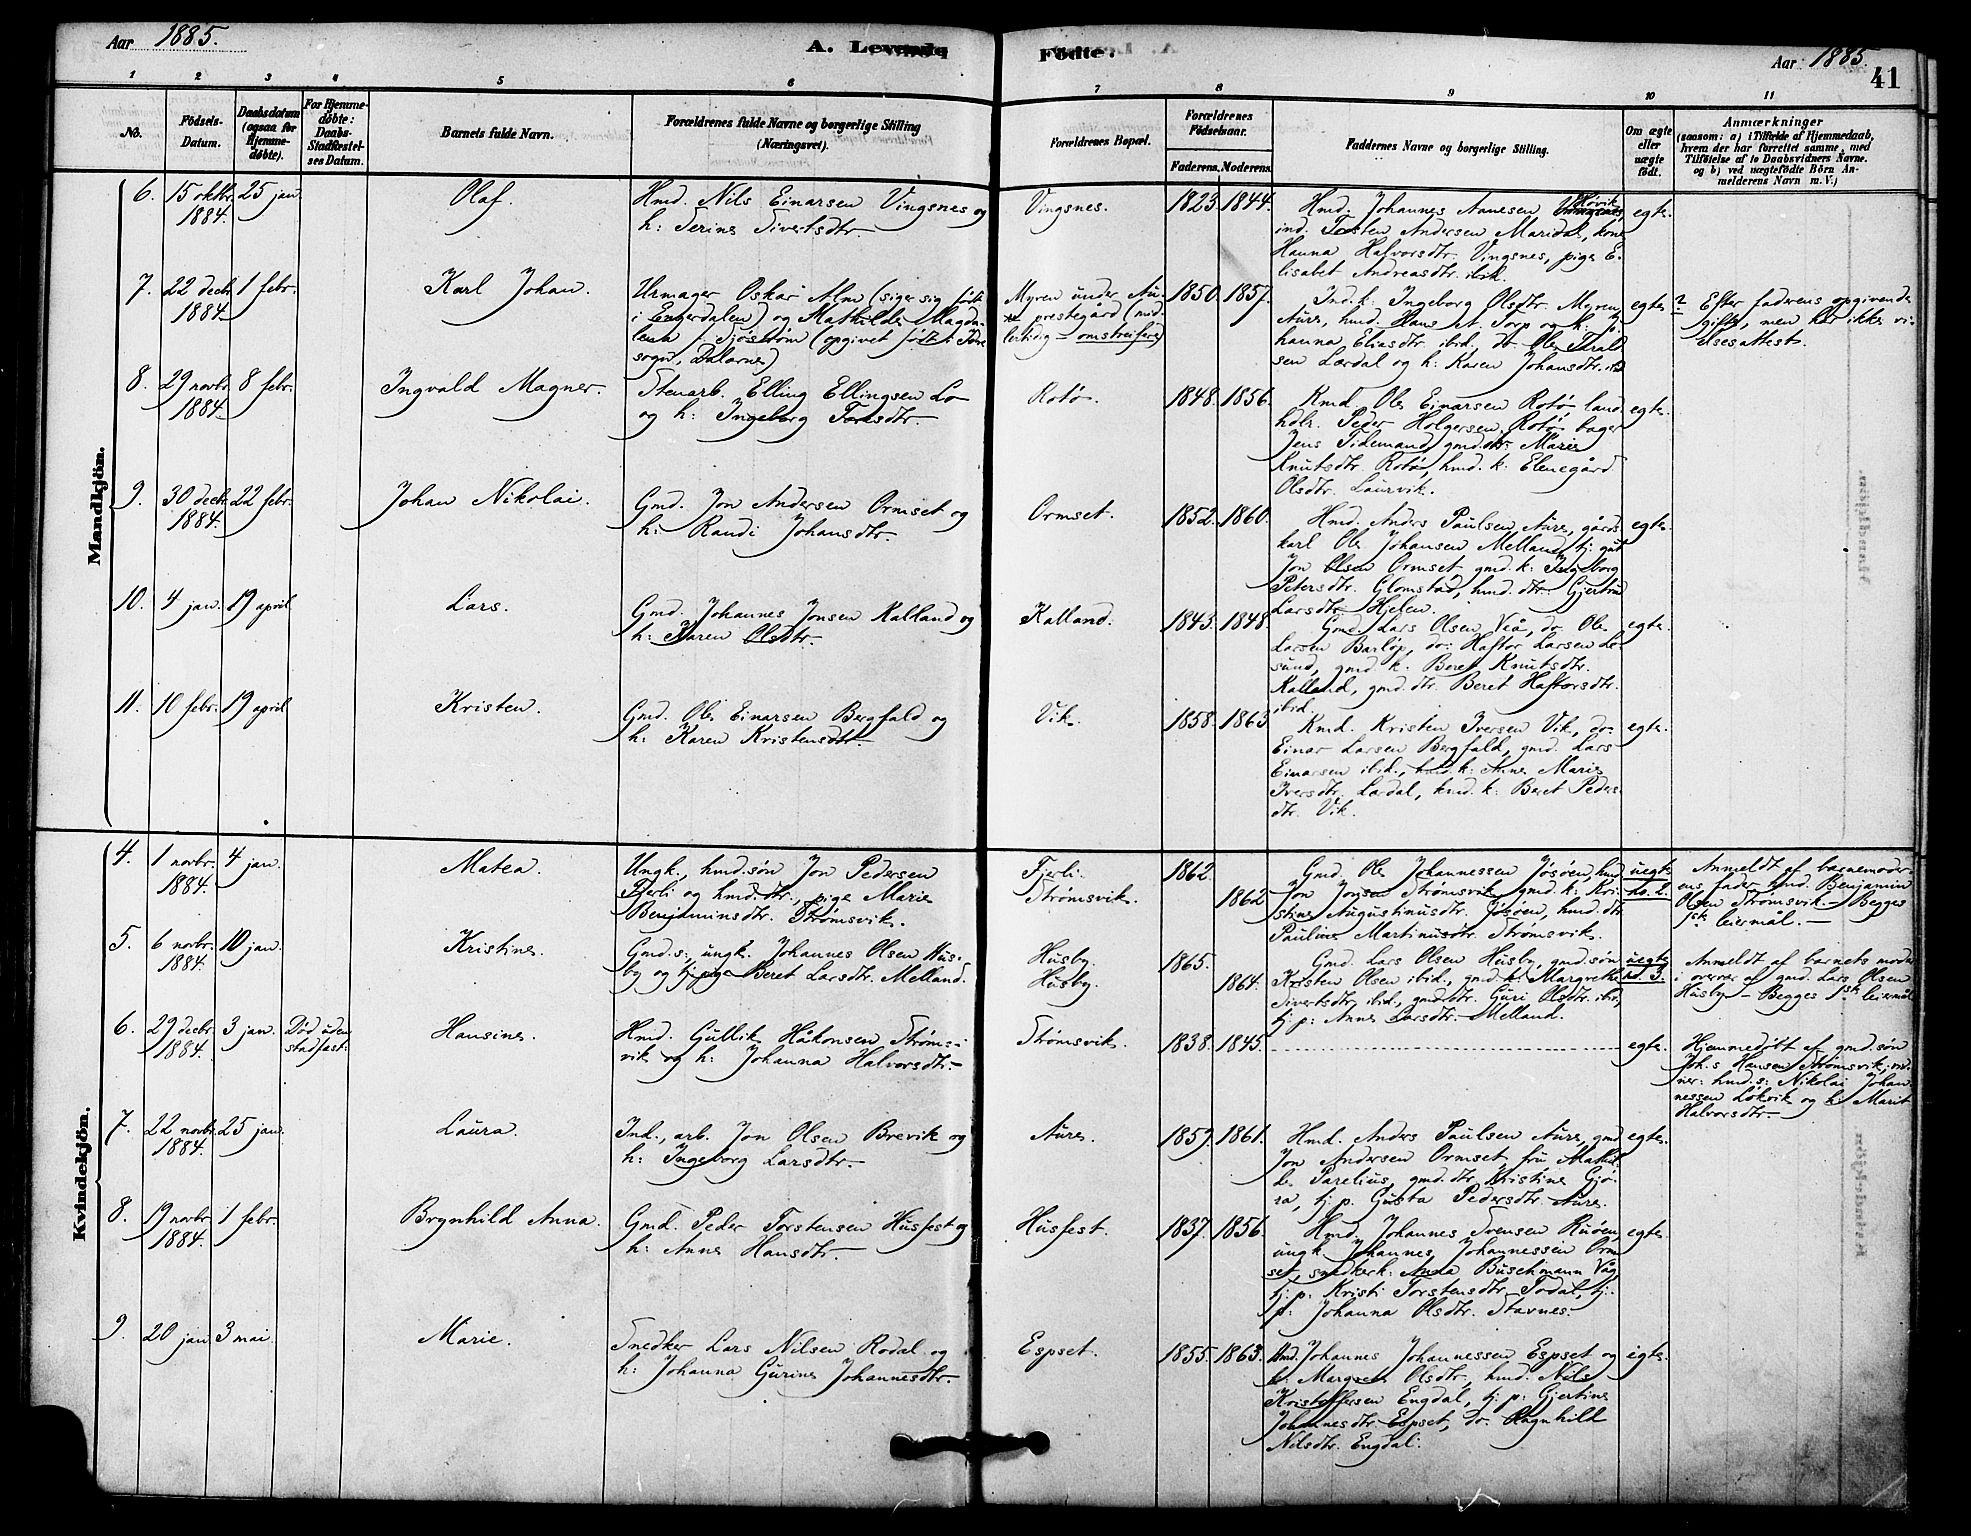 Aar 1885.
A. Levende
Födte.
Aar 1885.
41
1 2 3 4 5 6 7 8 9 10 11
No.
Födsels-
Datum.
Daabsdatum
(ogsaa for
Hjemme-
döbte).
For Hjemme-
döbte:
Daabs-
Stadfæstel-
ses Datum.
Barnets fulde Navn.
Forældrenes fulde Navne og borgerlige Stilling
(Næringsvei).
Forældrenes Bopæl.
Forældrenes
Födselsaar.
Faderens. Moderens.
Faddernes Navne og borgerlige Stilling.
Om ægte
eller
uægte
födt.
Anmærkninger
(saasom: a) i Tilfælde af Hjemmedaab,
hvem der har forrettet samme, med
Tilföielse af to Daabsvidners Navne.
og b) ved uægtefödte Börn An-
melderens Navn m. V.)
Mandkjön.
6. 15 oktbr. 1884. 25 jan. Olaf.
Hmd. Nils Einarsen Vingsnes og
h: Serine Sivertsdtr.
Vingsnes. 1823. 1844.
Hmd. Johannes Arnesen Høvik
ind. Torsten Andersen Maridal, kone
Hanna Halvorsdtr. Vingsnes, pige E-
lisabet Andreasdtr. ibid.
egte.
7. 22 decbr. 1884. 1 febr. Karl Johan.
Urmager Oskar Alm (siger sig født
i Engerdalen) og Mathilde Magda-
lena f. Sjöström (opgivet født i Idre
sogn, Dalarne)
Myren under Au-
re prestegård (mid-
lertidig – omstreifere)
1850. 1857.
Ind. k: Ingeborg Olsdtr. Myren
Aure, hmd. Hans A. Torp og k: J-
hanna Eliasdtr. ibid. do Ole
sen Lærdal og h: Karen Johansdtr. ibid
egte ?
Efter faderens opgivende
gifte, men har ikke vi-
elsesattest.
8. 29 novbr. 1884. 8 febr. Ingvald Magner.
Stenarb. Elling Ellingsen Lo
og h: Ingeborg Toresdtr.
Rotø. 1848. 1856.
Kmd. Ole Einarsen Rotø, land-
hdlr. Peder Holgersen, Rotø bager
Jens Tidemand, gmd.dtr: Marie
Knutsdtr. Rotø, hmd. k: Elenegård
Olsdtr. Laurvik.
egte.
9. 30 decbr. 1884. 22 febr. Johan Nikolai.
Gmd. Jon Andersen Ormset og
h: Randi Johansdtr.
Ormset. 1852. 1860.
Hmd. Anders Paulsen Aure, gårds-
karl Ole Johansen Melland, tj. gut
Jon Olsen Ormset, gmd. k: Ingeborg
Petersdtr. Glomstad, hmd. dtr. Gjertrud
Larsdtr. Hjelen.
egte.
10. 4 jan. 19 april Lars.
Gmd. Johannes Jonsen Kalland og
h: Karen Olsdtr.
Kalland. 1843. 1848.
Gmd. Lars Olsen Viå, do Ole
Larsen Barløp, do: Haftor Larsen Le-
sund, gmd k. Beret Knutsdtr.
Kalland, gmd. dtr. Beret Haftorsdtr.
ibid.
egte.
11. 10 febr. 19 april Kristen.
Gmd. Ole Einarsen Bergfald og
h: Karen Kristensdtr.
Vik. 1858. 1863
Kmd. Kristen Iversen Vik, do
Einar Larsen Bergfald, gmd. Lars
Einarsen ibid., hmd. k: Anne Marie
Iversdtr. Lærdal, kmd. k: Beret Peders-
dtr. Vik.
egte.
Kvindekjön.
4. 1 novbr. 1884. 4 jan. Matea.
Ungk., hmd.søn Jon Pedersen
Fjerli og hmd.dtr., pige Marie
Benjaminsdtr. Strømsvik.
Fjerli. 1862.
Strømsvik. 1862
Gmd. Ole Johannessen Jøsøen, hmd
Jon Jonsen Strømsvik, gmd. k: Kri-
stine Augustinusdtr. Jøsøen, hmd. dtr
Pauline Martinusdtr. Strømsvik.
uegte
no. 2.
Anmeldt af barnemoder-
ens fader hmd. Benjamin
Olsen Strømsvik. – Begges
1ste leiermål. –
5. 6 novbr. 1884. 10 jan. Kristine.
Gmd.s., ungk. Johannes Olsen Hus-
by og tj. pige Beret Larsdtr. Melland.
Husby. 1865.
Husby. 1864.
Gmd. Lars Olsen Husby, gmd.søn
Kristen Olsen ibid., gmd. k: Margrethe
Sivertsdtr. ibid., gmd.dtr. Guri Olsdtr. ibid,
tj. p: Anne Larsdtr. Melland.
uegte
no. 3.
Anmeldt af barnets moder
i overvær af gmd. Lars Olsen
Husby – Begges 1ste leiermål
6. 29 decbr. 1884. 3 jan. Død uden
stadfæst:
Hansine.
Hmd. Gullik Håkonsen Strøms-
vik og h: Johanna Halvorsdtr. –
Strømsvik. 1838. 1845.
egte.
Hjemmedøbt af gmd.søn
Joh.s Hansen Strømsvik, vid-
ner: hmd.s: Nikolai Johan-
nessen Løkvik og h: Marit
Halvorsdtr. –
7. 22 novbr. 1884. 25 jan. Laura.
Ind., arb. Jon Olsen Brevik og
h: Ingeborg Larsdtr. –
Aure. 1857. 1861.
Hmd. Anders Paulsen Aure, gmd
Jon Andersen Ormset, fru Mathil-
de Parelius, gmd. dtr. Kristine Gjø-
ra, tj. p. Gusta Pedersdtr. Aure.
egte.
8. 19 novbr. 1884. 1 febr. Brynhild Anna.
Gmd. Peder Torstensen Husfest og
h: Anne Hansdtr. –
Husfest. 1837. 1856.
Hmd. Johannes Svensen Ruøen,
ungk. Johannes Johannessen Orm-
set, snedker k: Anna Buschmann Våg
tj. p: Kristi Torstensdtr. Todal, tj.
p: Johanna Olsdtr. Stavnes.
egte.
9. 20 jan 3 mai. Marie.
Snedker Lars Nilsen Rodal og
h: Johanna Gurine Johannesdtr.
Espset. 1855. 1863.
Hmd. Johannes Johannessen Espset og
k: Margrete Olsdtr, hmd. Nils
Kristoffersen Engdal, tj. p: Gjertine
Johannesdtr. Espset, do. Ragnhild
Nilsdtr. Engdal.
egte.